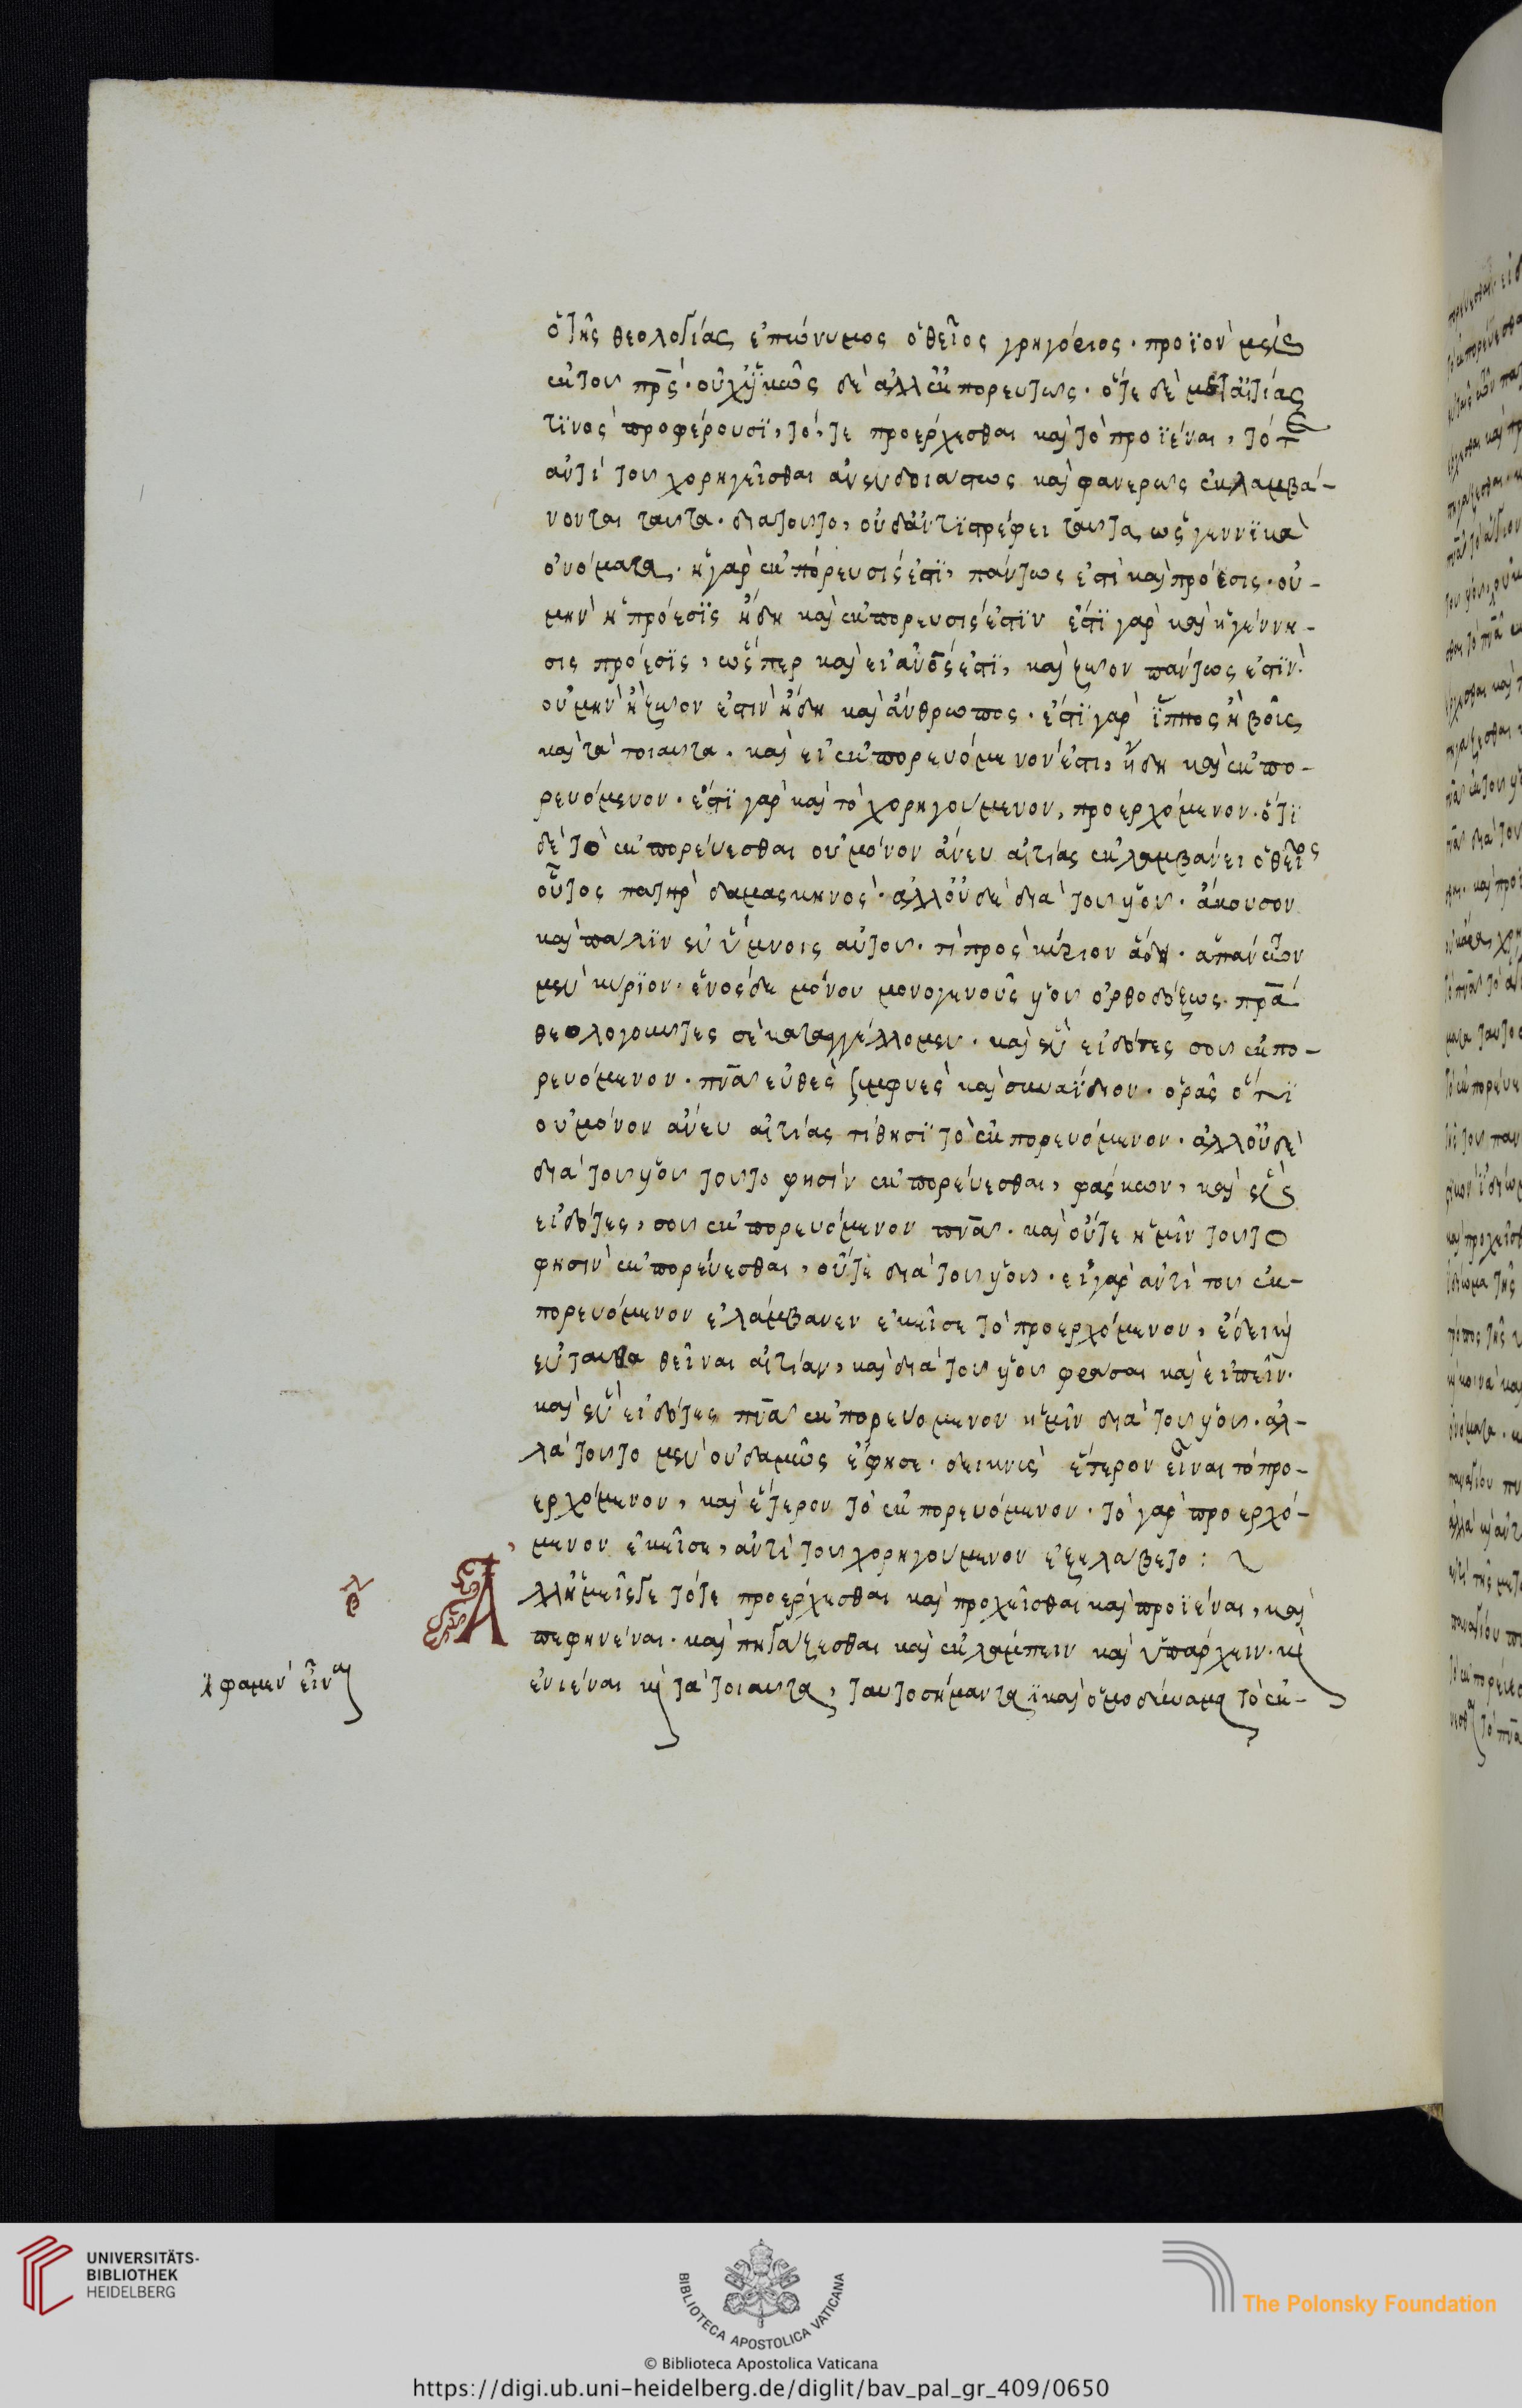 ὁ τῆς θεολογίας ἐπώνυμος ὁ θεῖος γρηγόριος. προϊὸν μὲν
ἐκ τοῦ πρς. οὐχ ὑϊκῶς δὲ ἀλλ ἐκπορευτῶς. ὅτε δὲ μετ αἰτίας
τϊνὸς προφέρουσϊ, τό, τε προέρχεσθαι καὶ τὸ προϊέναι,
ἀντὶ τοῦ χορηγεῖσθαι ἀνενδοιαστως καὶ φανερῶς ἐκλαμβά-
νονται ταῦτα. διατοῦτο, οὐδ ἀντϊστρέφει ταῦτα, ὡς γεννϊκὰ
ὀνόματα. ἡ γὰρ ἐκπόρευσίς ἐστϊ, πάντως ἐστὶ καὶ πρόεσις. οὐ-
μὴν ἡ πρόεσϊς ἤδη καὶ ἐκπορευσίς ἐστϊν ἐστϊ γὰρ καὶ ἡ γέννη-
σις πρόεσϊς, ὥς περ καὶ εἰ ανος ἐστϊ, καὶ ζωον πάντως ἐστϊν.
οὐ μὴν εἰ ζωον ἐστὶν ἤδη καὶ ἄνθρωπος. ἔστϊ γὰρ ἵππος ἢ βοῦς
καὶ τὰ τοιαυτα. καὶ εἰ ἐκπορευόμενον ἐστι, ἤδη καὶ ἐκπο-
ρευόμενον. ἐστϊ γὰρ καὶ τὸ χορηγουμενον, προερχόμενον. ὅτϊ
δὲ τὸ ἐκπορεύεσθαι οὐ μόνον ἄνευ αἰτίας ἐκλαμβάνει ὁ θεῖος
οὗτος πατὴρ δαμασκηνὸς. ἀλλ οὐδὲ διὰ τοῦ υἱοῦ. ἄκουσον
καὶ παλϊν ἐν ὕμνοις αὐτοῦ. τί πρὸς κύριον
μὲν κυρϊον. ἑνὸς δὲ μόνον μονογενοῦς υἱοῦ ὀρθοδόξως πρα
θεολογουντες σὲ καταγγέλλομεν. καὶ ἓν εἰδότες σου ἐκπο-
ρευόμενον. πνα εὐθὲς ξυμφυὲς καὶ συναΐδιον. ὁρᾶς ὅτϊ
οὐ μόνον ἄνευ αἰτίας τίθησϊ τὸ ἐκπορευόμενον. ἀλλ οὐδὲ
διὰ τοῦ υἱοῦ τοῦτο φησὶν ἐκπορεύεσθαι, φάσκων, καὶ ἓν
εἰδότες, σου ἐκπορευόμενον πνα. καὶ οὔτε ἡμῖν τοῦτο
φησὶν ἐκπορεύεσθαι, οὔτε διὰ τοῦ υἱοῦ. εἰ γὰρ ἀντὶ του ἐκ-
πορευόμενον ἐλάμβανεν ἐκεῖσε τὸ προερχόμενον, ἔδει καὶ
ἐνταυθα θεῖναι αἰτίαν, καὶ διὰ τοῦ υἱοῦ φρασαι καὶ εἰπεῖν.
καὶ ἓν εἰδότες πνα ἐκπορευομενον ἡμῖν διὰ τοῦ υἱοῦ. ἀλ-
λὰ τοῦτο μὲν οὐδαμῶς ἔφησε. δεικνὺς ἕτερον εἶναι τὸ προ-
ερχόμενον, καὶ ἕτερον τὸ ἐκπορευόμενον. τὸ γὰρ προερχό-
μενον ἐκεῖσε, ἀντὶ τοῦ χορηγουμενον ἐξελαβετο:
Ἀλλ ἡμεῖς δε τότε προέρχεσθαι καὶ προχεῖσθαι καὶ προϊέναι, καὶ
πεφηνέναι. καὶ πηγάζεσθαι καὶ ἐκλάμπειν καὶ ὑπάρχειν. καὶ
ἐνιέναι καὶ τὰ τοιαυτα, ταυτοσήμαντα ϊ καὶ ὁμοδύναμα τὸ ἐκ-
φαμὲν εἶναι
UNIVERSITÄTS-
BIBLIOTHEK
HEIDELBERG
BIBLIOTECA APOSTOLICA VATICANA
The Polonsky Foundation
© Biblioteca Apostolica Vaticana
https://digi.ub.uni-heidelberg.de/diglit/bav_pal_gr_409/0650